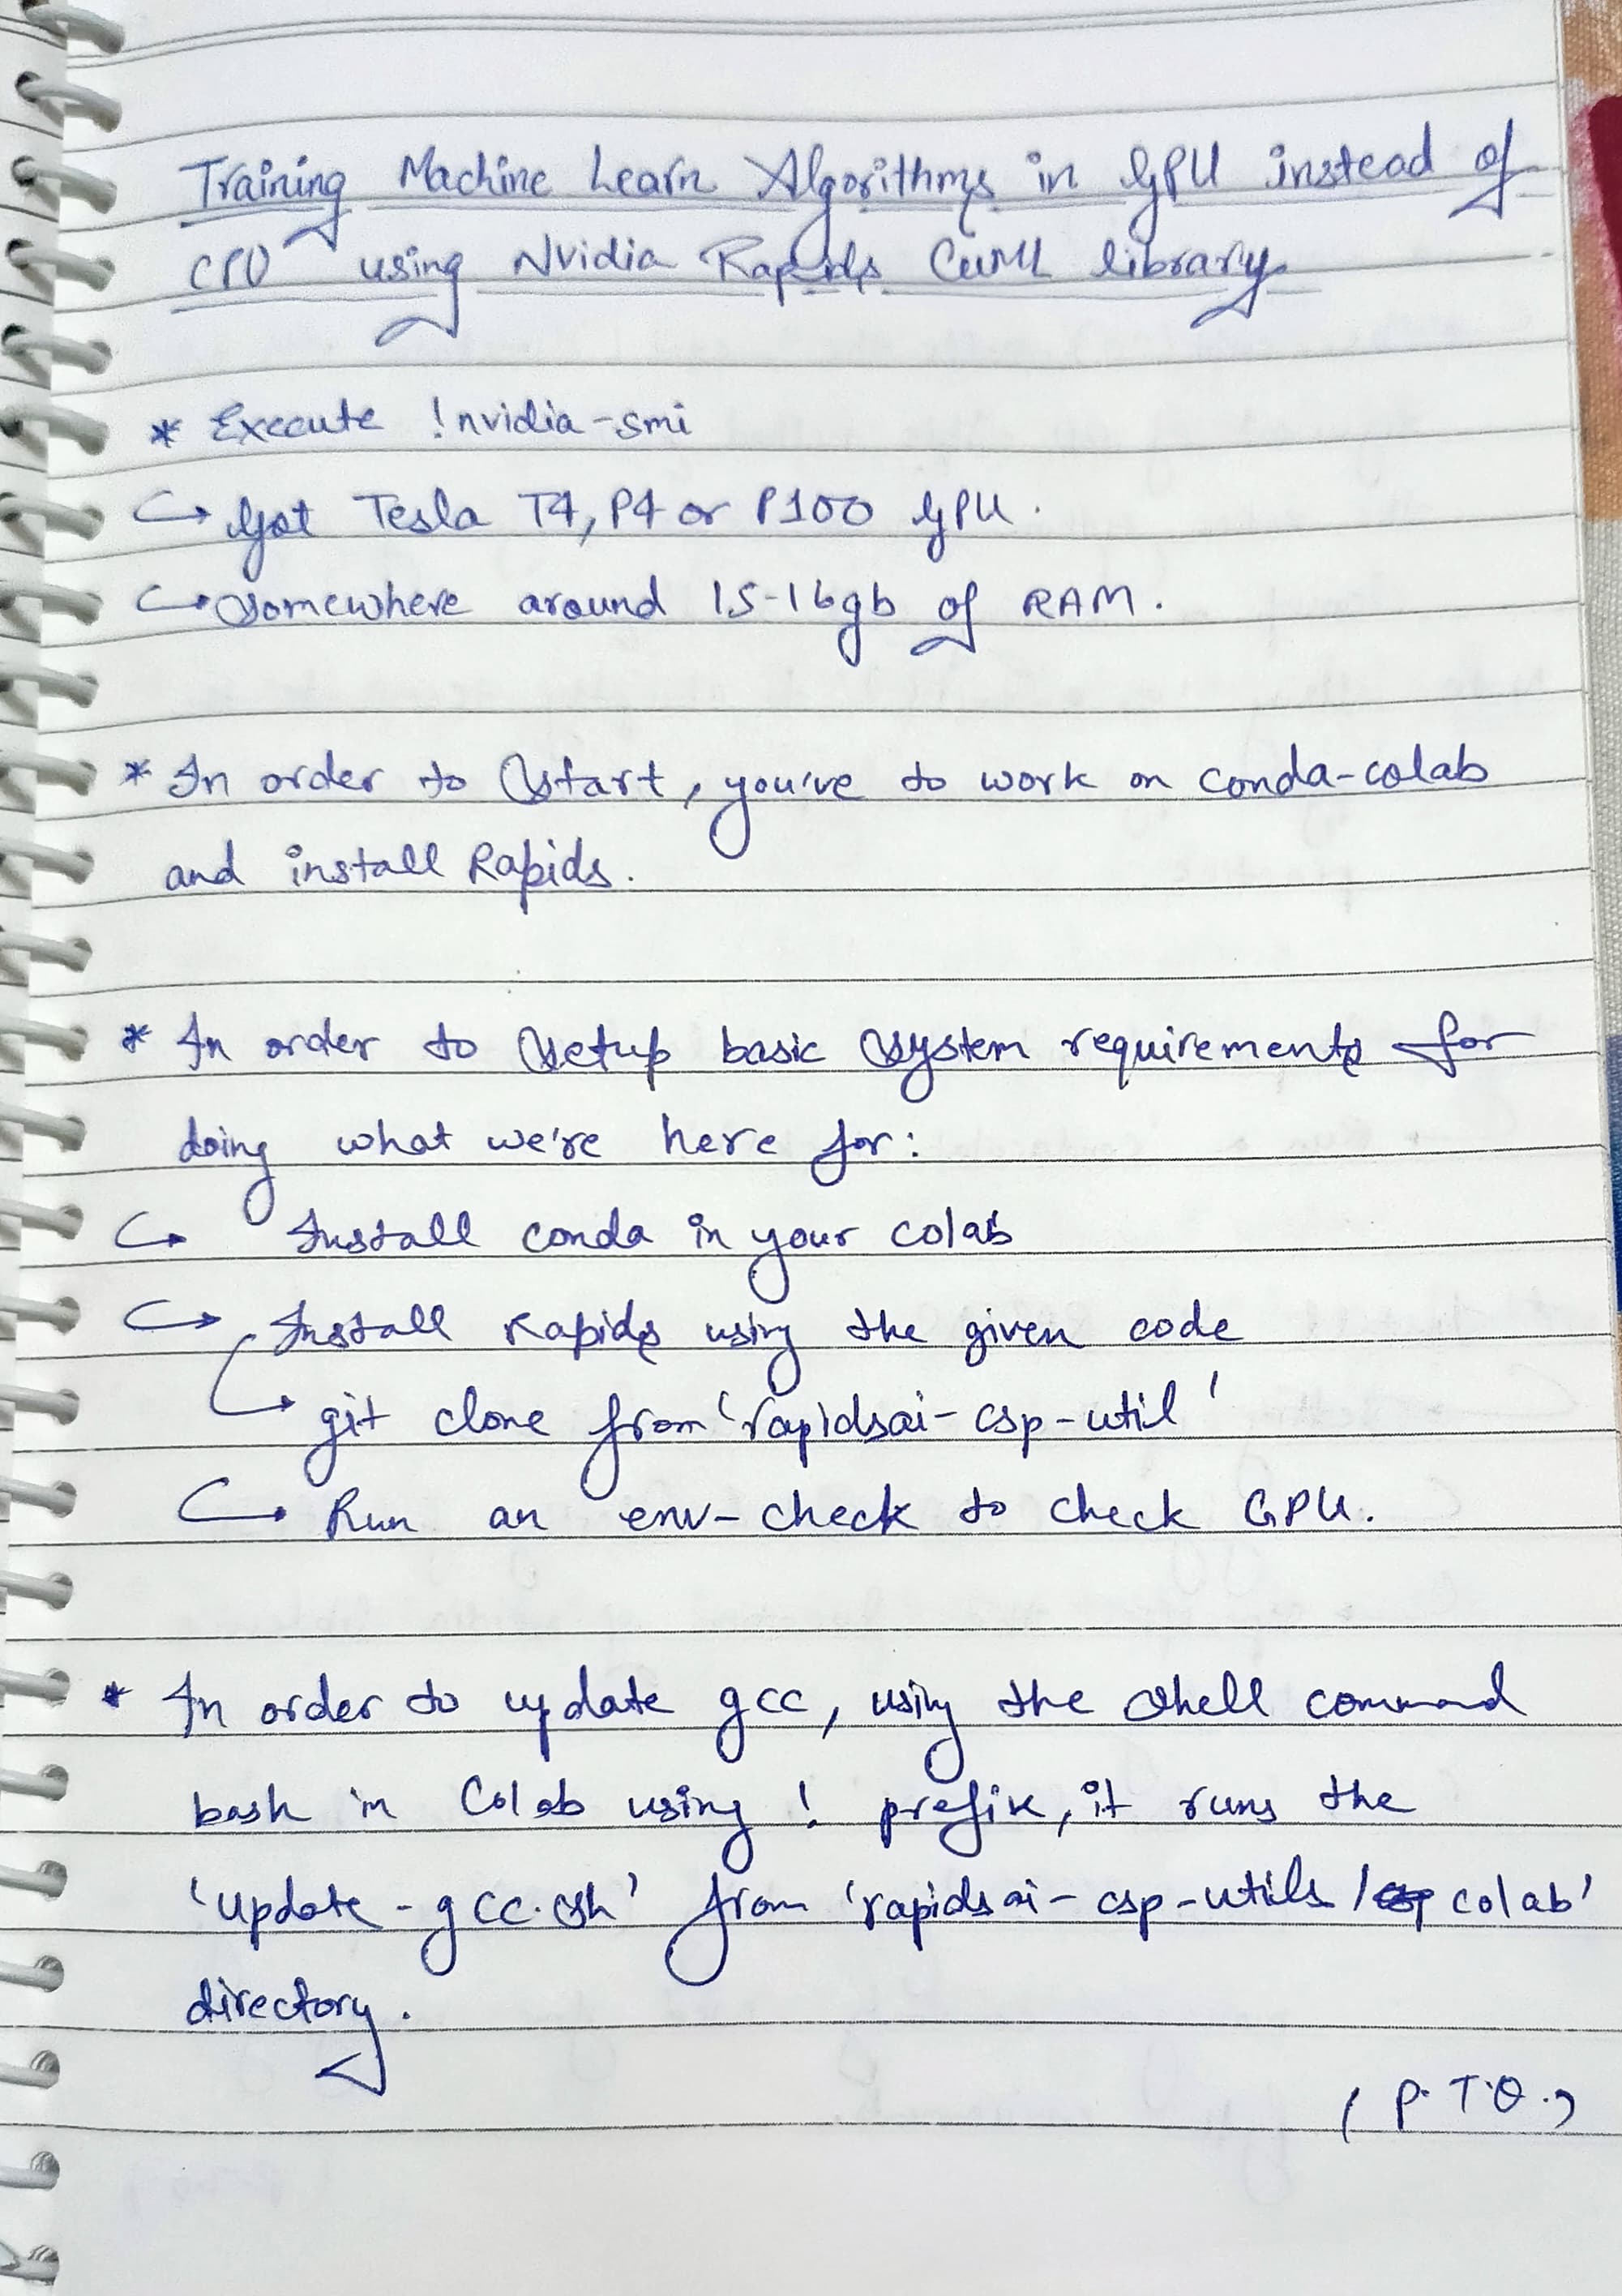 Training Machine Learn Algorithms in GPU instead of
CPU using Nvidia Rapids CuML library
* Execute !nvidia-smi
↳ Got Tesla T4, P4 or P100 GPU.
↳ somewhere around 15-16gb of RAM.
* In order to start, you've to work on conda-colab
and install Rapids.
* In order to setup basic system requirements for
doing what we're here for:
↳ Install conda in your colab
↳ Install Rapids using the given code
↳ git clone from 'rapidsai-csp-util'
↳ Run an env-check to check GPU.
* In order to update gcc, using the shell command
bash in Colab using ! prefix, it runs the
'update-gcc.sh' from 'rapidsai-csp-utils/colab'
directory.
(P.T.O.)